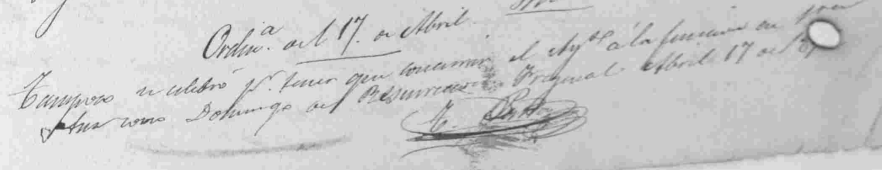 Ordin.ª del 17. de Abril.
Tampoco se celebró p.r tener que concurrir el Ay.to á la funcion de
como Domingo de Resurreccion. Fregenal Abril 17 de